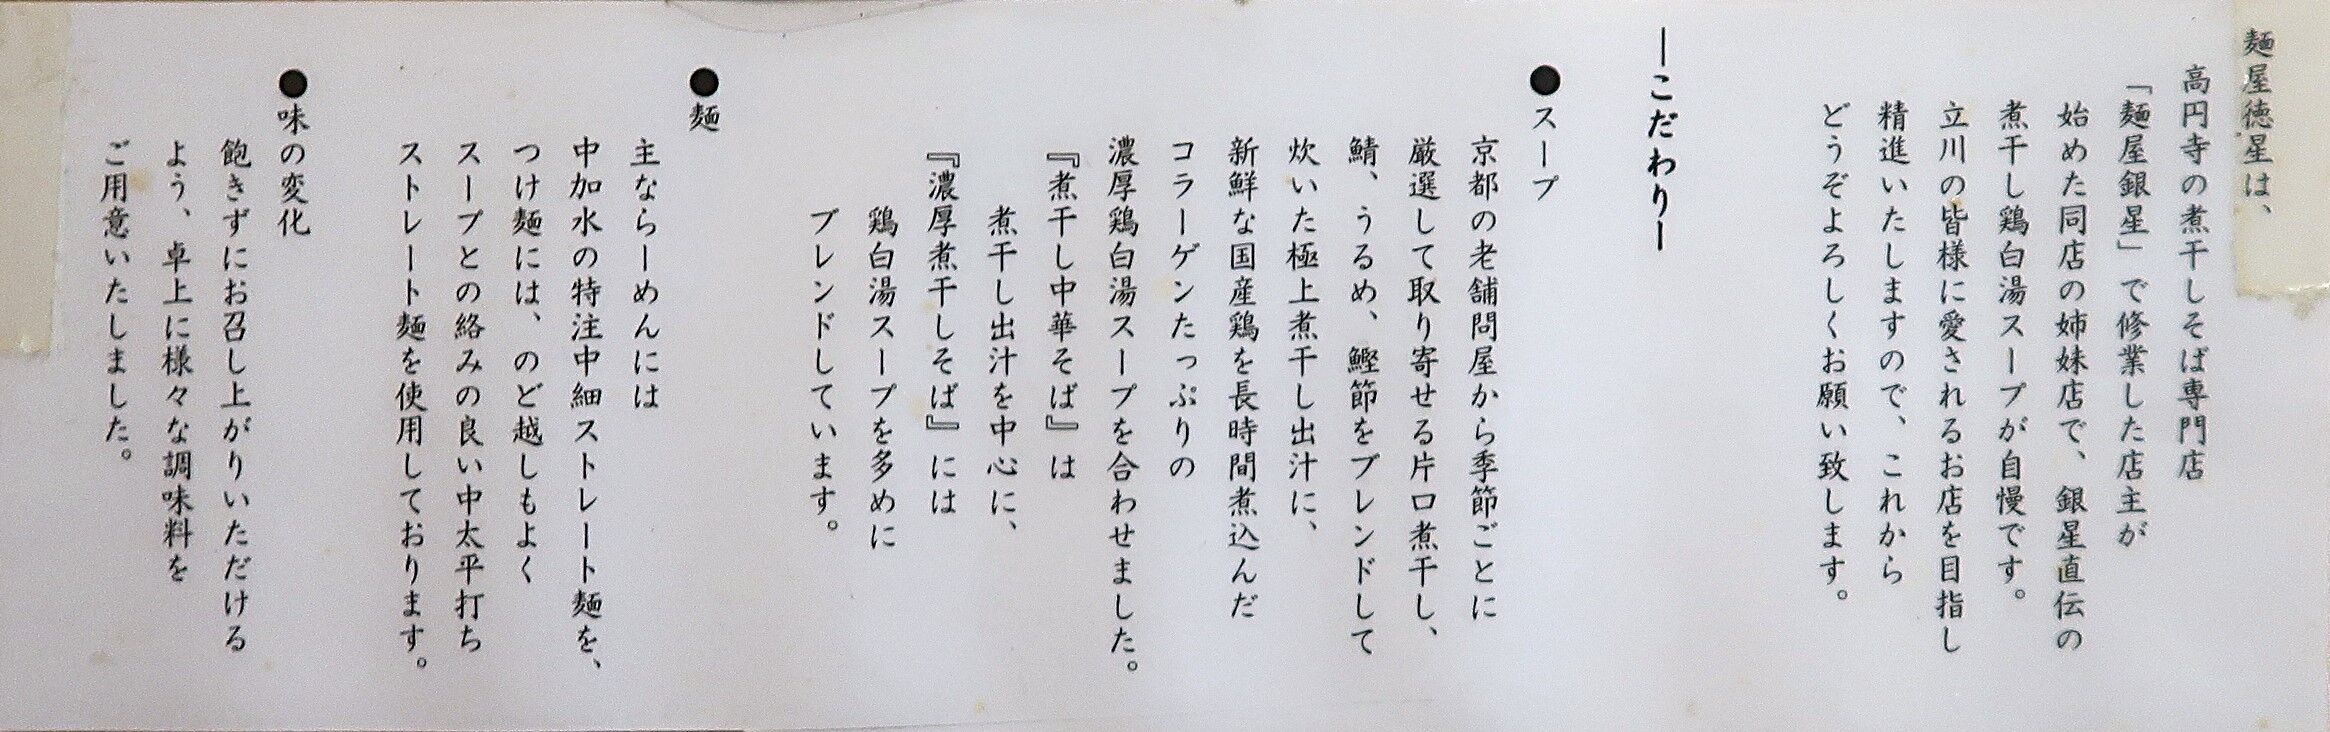 麺屋徳星は、
高円寺の煮干しそば専門店
「麺屋銀星」で修業した店主が
始めた同店の姉妹店で、銀星直伝の
煮干し鶏白湯スープが自慢です。
立川の皆様に愛されるお店を目指し
精進いたしますので、これから
どうぞよろしくお願い致します。
ーこだわりー
●スープ
京都の老舗問屋から季節ごとに
厳選して取り寄せる片口煮干し、
鯖、うるめ、鰹節をブレンドして
炊いた極上煮干し出汁に、
新鮮な国産鶏を長時間煮込んだ
コラーゲンたっぷりの
濃厚鶏白湯スープを合わせました。
『煮干し中華そば』は
煮干し出汁を中心に、
『濃厚煮干しそば』には
鶏白湯スープを多めに
ブレンドしています。
●麺
主ならーめんには
中加水の特注中細ストレート麺を、
つけ麺には、のど越しもよく
スープとの絡みの良い中太平打ち
ストレート麺を使用しております。
●味の変化
飽きずにお召し上がりいただける
よう、卓上に様々な調味料を
ご用意いたしました。